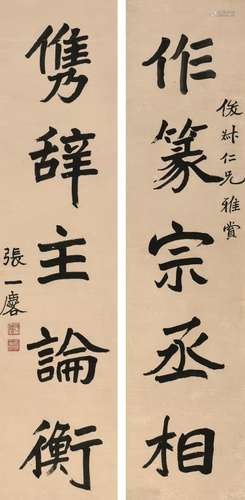 作篆宗丞相
俊叔仁兄雅賞
儁辭主論衡
張一麐